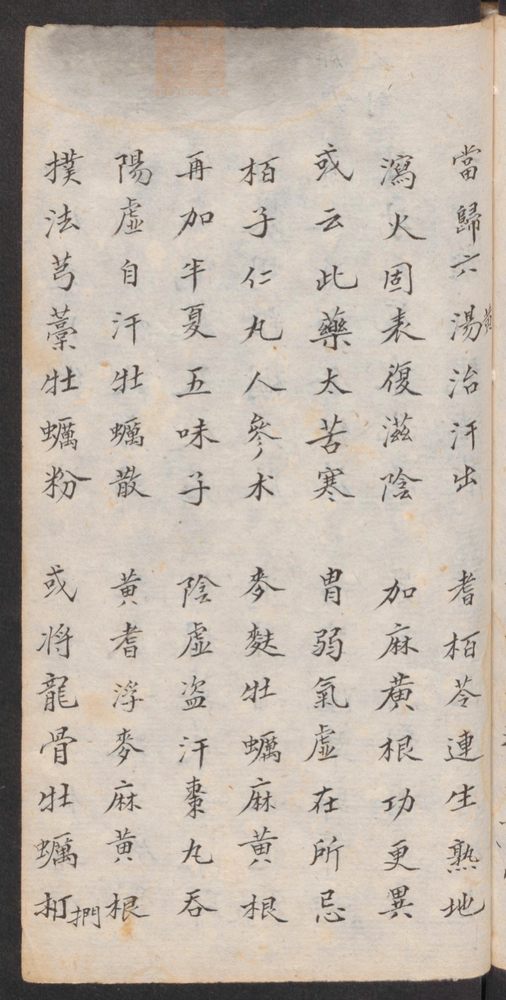 當歸六黃湯治汗出 耆柏苓連生熟地
瀉火固表復滋陰 加麻黃根功更異
或云此藥太苦寒 胃弱氣虛在所忌
柏子仁丸人參术 麥麩牡蠣麻黃根
再加半夏五味子 陰虛盜汗棗丸吞
陽虛自汗牡蠣散 黃耆浮麥麻黃根
撲法芎藁牡蠣粉 或將龍骨牡蠣捫